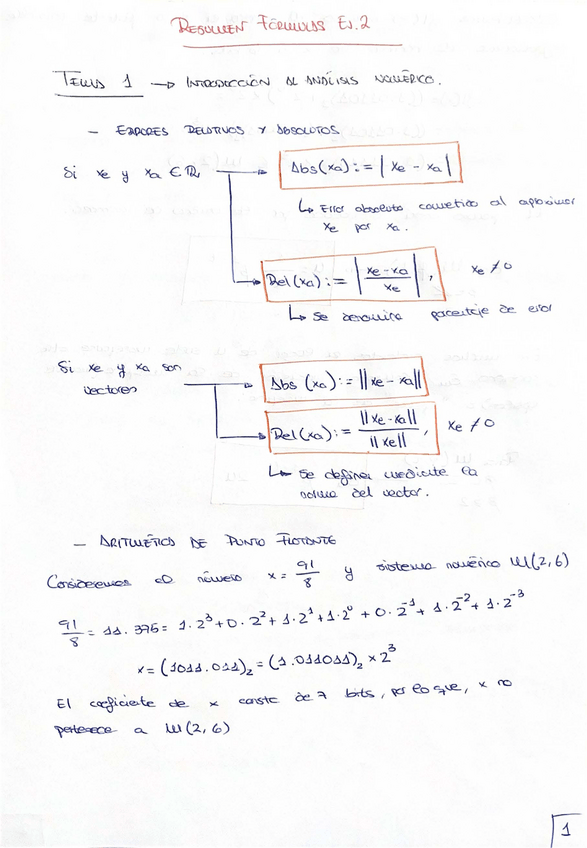 RESUMEN FÓRMULAS EJ.2
TEMA 1 → INTRODUCCIÓN AL ANÁLISIS NUMÉRICO.
- ERRORES RELATIVOS Y ABSOLUTOS
Si xe y xa ∈ ℝ, → Abs(xa) := | xe - xa |
↳ Error absoluto cometido al aproximar
xe por xa.
→ Rel(xa) := | (xe - xa) / xe | , xe ≠ 0
↳ Se denomina porcentaje de error
Si xe y xa son
vectores → Abs (xa) := || xe - xa ||
→ Rel(xa) := || xe - xa || / || xe || , xe ≠ 0
↳ Se definen mediante la
norma del vector.
- ARITMÉTICA DE PUNTO FLOTANTE
Consideremos el número x = 91/8 y sistema numérico M(2,6)
91/8 = 11.375 = 1·2³ + 0·2² + 1·2¹ + 1·2⁰ + 0·2⁻¹ + 1·2⁻² + 1·2⁻³
x = (1011.011)₂ = (1.011011)₂ × 2³
El coeficiente de x consta de 7 bits, por lo que, x no
pertenece a M(2,6)
1